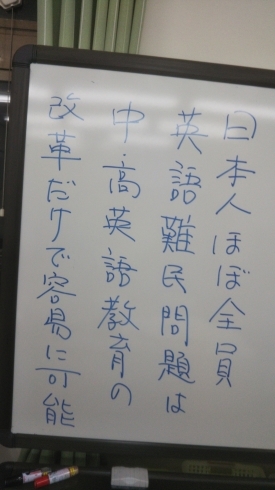 日本人ほぼ全員
英語難民問題は
中・高英語教育の
改革だけで容易に可能